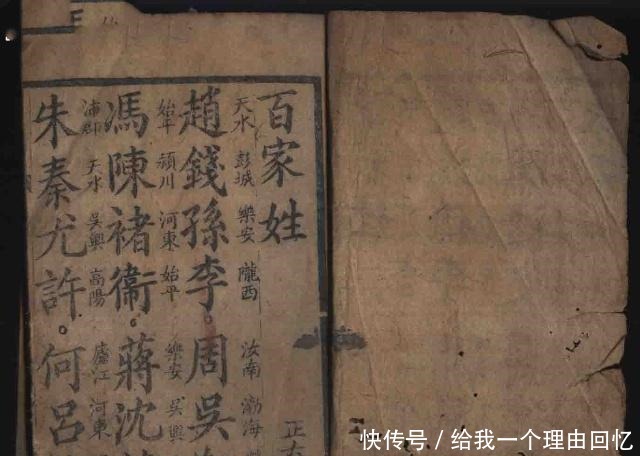 百家姓
天水 彭城 樂安 隴西 汝南 渤海
趙錢孫李。周吳
始平 頴川 河東 始平 樂安 吳興
馮陳褚衛。蔣沈
沛郡 天水 吳興 高陽 廬江 河東
朱秦尤許。何呂
快传号 / 给我一个理由回忆